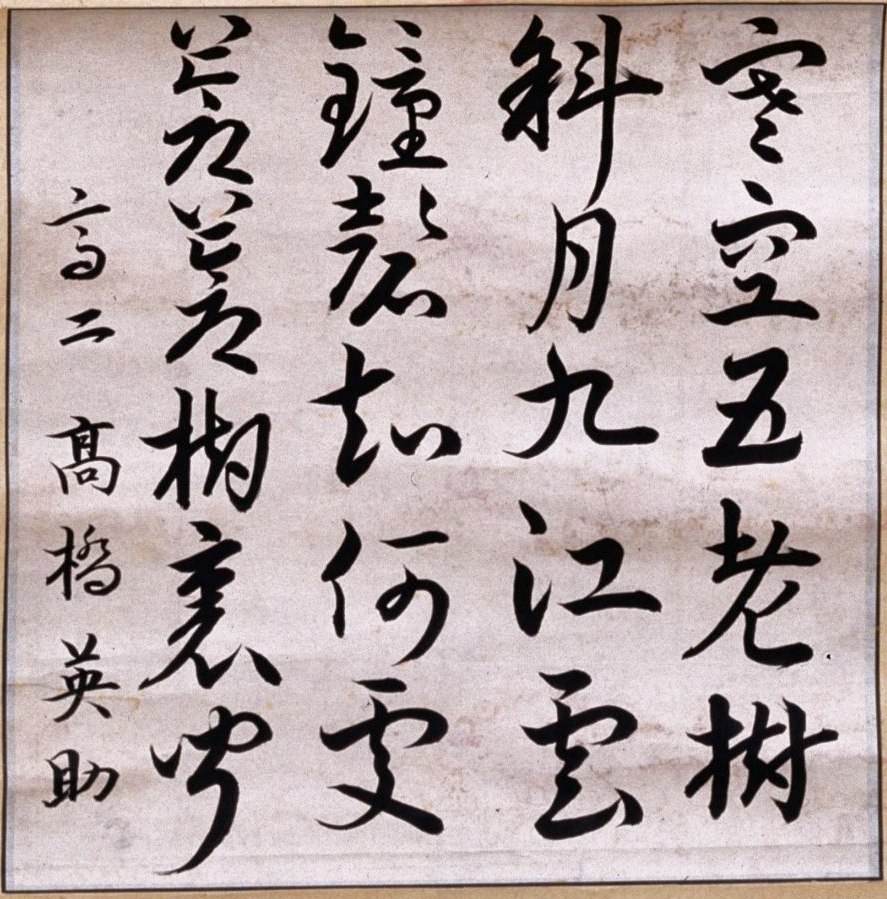 寒空五老樹
斜月九江雲
鐘磬知何處
蒼蒼樹裏聞
高二 髙橋英助